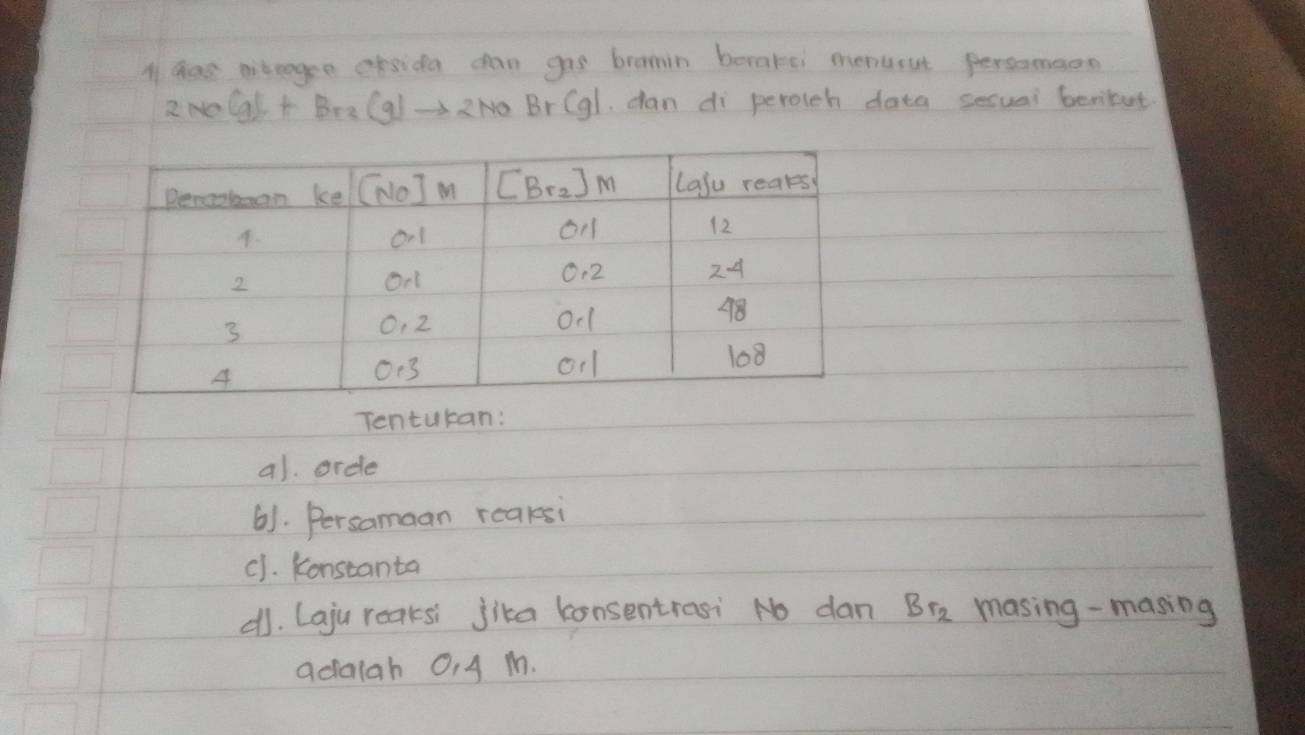 1) Gas nitrogen oksida dan gas bromin beraksi menurut persamaan
2NO(g) + Br2(g) → 2NO Br(g). dan di peroleh data sesuai berikut.
Percobaan ke [NO] M [Br2] M Laju reaksi
1. 0,1 0,1 12
2 0,1 0,2 24
3 0,2 0,1 48
4 0,3 0,1 108
Tentukan:
a). orde
b). Persamaan reaksi
c). Konstanta
d). Laju reaksi jika konsentrasi NO dan Br2 masing-masing
adalah 0,4 M.